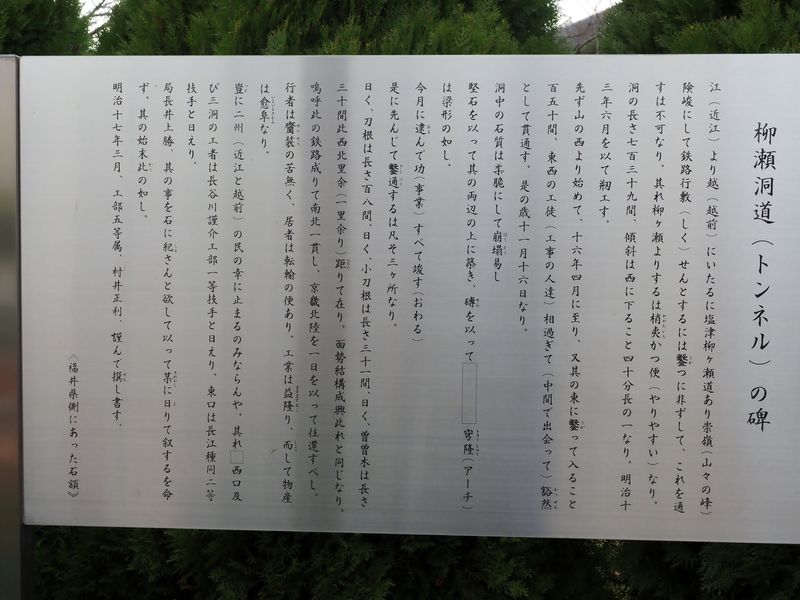 柳瀬洞道（トンネル）の碑
江（近江）より越（越前）にいたるに塩津柳ヶ瀬道あり崇嶺（山々の峰）
険峻にして鉄路行敷（しく）せんとするには鑿つに非ずして、これを通
すは不可なり。其れ柳ヶ瀬よりするは梢夷かつ便（やりやすい）なり。
洞の長さ七百三十九間、傾斜は西に下ること四十分長の一なり。明治十
三年六月を以て剏工す。
先ず山の西より始めて、十六年四月に至り、又其の東に鑿って入ること
百五十間、東西の工徒（工事の人達）相過ぎて（中間で出会って）谿然
として貫通す。是の歳十一月十六日なり。
洞中の石質は柔脆にして崩塌易し
堅石を以って其の両辺の上に築き、磚を以って□穹隆（アーチ）
は梁形の如し。
今月に逮んで功（事業）すべて竣す（おわる）
是に先んじて鑿通するは凡そ三ヶ所なり。
曰く、刀根は長さ百八間、曰く、小刀根は長さ三十一間、曰く、曽曽木は長さ
三十間此西北里余（一里余り）距りて在り。面勢結構成興此れと同じなり。
嗚呼此の鉄路成りて南北一貫し、京畿北陸を一日を以って往還すべし。
行者は齎装の苦無く、居者は転輸の便あり。工業は益隆り、而して物産
は愈阜なり。
豈に二州（近江と越前）の民の幸に止まるのみならんや。其れ□西口及
び三洞の工者は長谷川謹介工部一等技手と日えり。東口は長江種同二等
技手と日えり。
局長井上勝、其の事を石に紀さんと欲して以って某に日りて叙するを命
ず。其の始末此の如し。
明治十七年三月、工部五等属、村井正利、謹んで撰し書す。
《福井県側にあった石額》